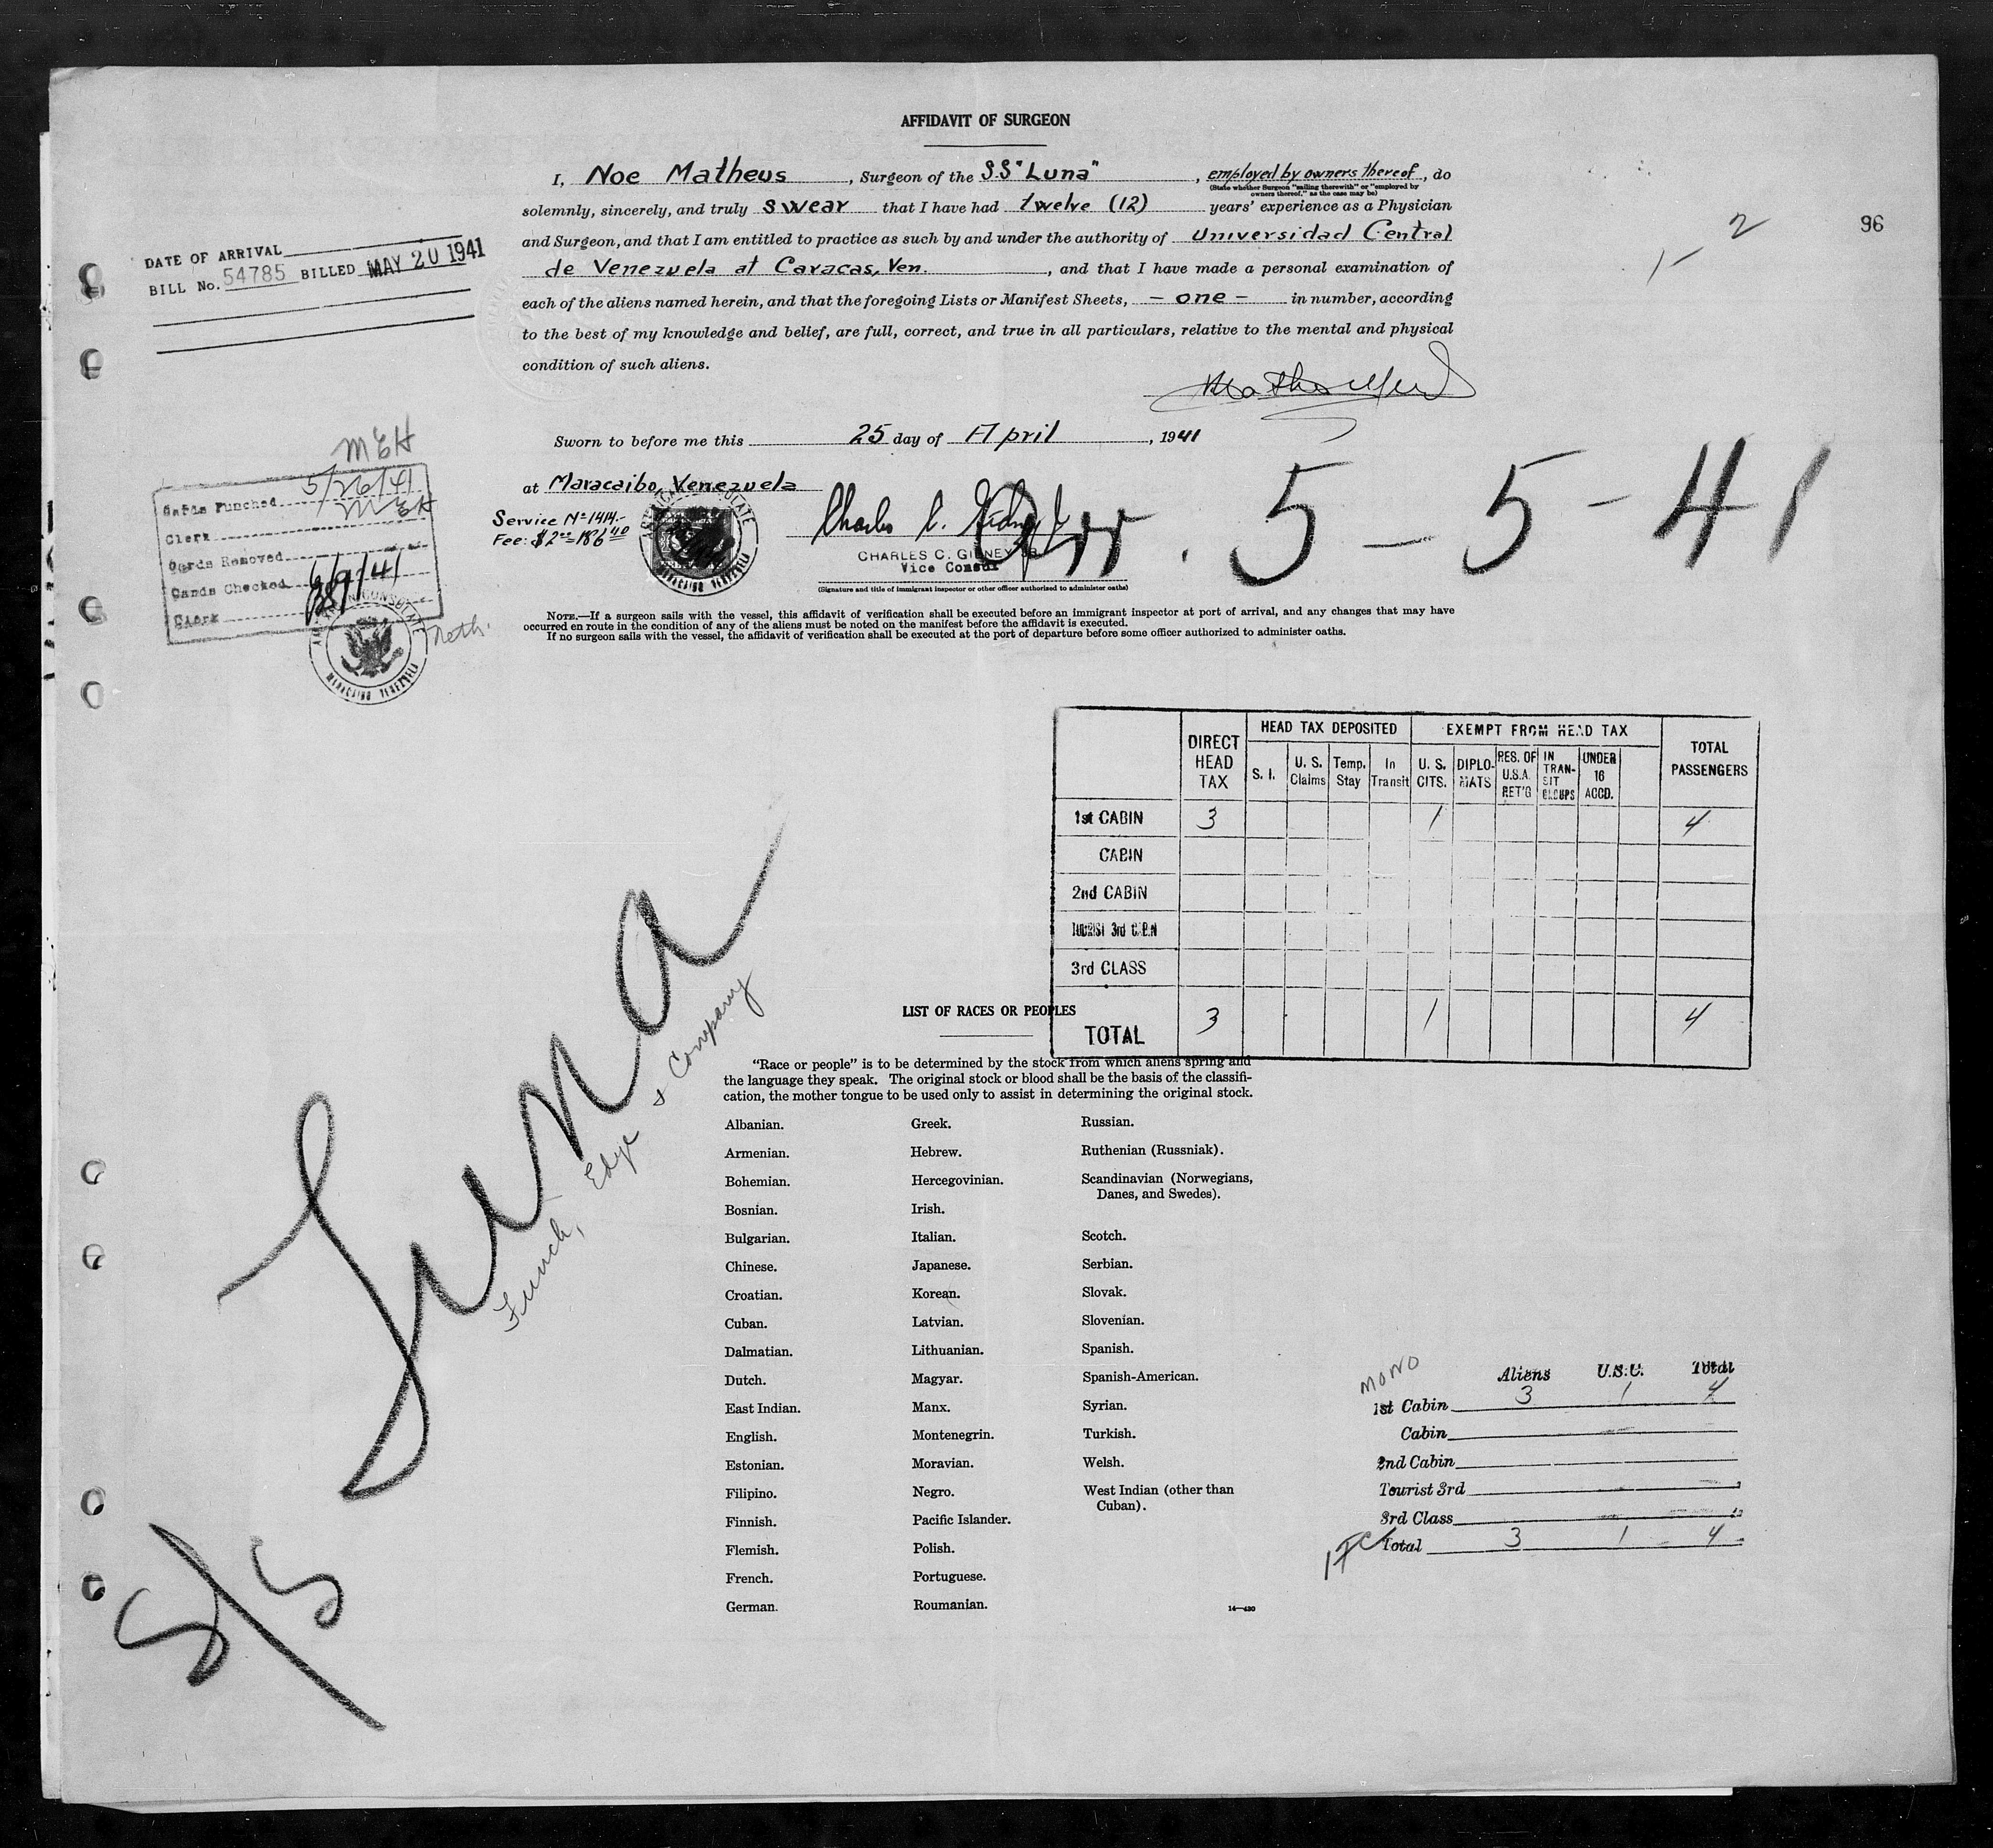 AFFIDAVIT OF SURGEON
I, Noe Matheus, Surgeon of the S.S "Luna", employed by owners thereof, do
(State whether Surgeon "sailing therewith" or "employed by
owners thereof," as the case may be)
solemnly, sincerely, and truly swear that I have had twelve (12) years' experience as a Physician
and Surgeon, and that I am entitled to practice as such by and under the authority of Universidad Central
de Venezuela at Caracas, Ven., and that I have made a personal examination of
each of the aliens named herein, and that the foregoing Lists or Manifest Sheets, - one - in number, according
to the best of my knowledge and belief, are full, correct, and true in all particulars, relative to the mental and physical
condition of such aliens.
1- 2
96
DATE OF ARRIVAL
BILL No. 54785 BILLED MAY 20 1941
Sworn to before me this 25 day of April, 1941
at Maracaibo, Venezuela
Service Nº 1414.-
Fee: $2.00=186.40
AMERICAN CONSULATE
MARACAIBO VENEZUELA
Charles C. Gidney Jr
CHARLES C. GIDNEY JR.
Vice Consul
(Signature and title of immigrant inspector or other officer authorized to administer oaths)
Arr. 5-5-41
MEH
Cards Punched 5/26/41
Clerk MEH
Cards Removed
Cards Checked
Clerk
AMERICAN CONSULATE
MARACAIBO VENEZUELA
Neth.
NOTE.—If a surgeon sails with the vessel, this affidavit of verification shall be executed before an immigrant inspector at port of arrival, and any changes that may have
occurred en route in the condition of any of the aliens must be noted on the manifest before the affidavit is executed.
If no surgeon sails with the vessel, the affidavit of verification shall be executed at the port of departure before some officer authorized to administer oaths.
DIRECT HEAD TAX
HEAD TAX DEPOSITED
EXEMPT FROM HEAD TAX
TOTAL PASSENGERS
S. I. U. S. Claims Temp. Stay In Transit U. S. CITS. DIPLO-MATS RES. OF U.S.A. RET'G IN TRAN-SIT GROUPS UNDER 16 ACCD.
1st CABIN 3 1 4
CABIN
2nd CABIN
TOURIST 3rd CABIN
3rd CLASS
TOTAL 3 1 4
S/S Luna
Funch, Edye & Company
LIST OF RACES OR PEOPLES
"Race or people" is to be determined by the stock from which aliens spring and
the language they speak. The original stock or blood shall be the basis of the classifi-
cation, the mother tongue to be used only to assist in determining the original stock.
Albanian.
Armenian.
Bohemian.
Bosnian.
Bulgarian.
Chinese.
Croatian.
Cuban.
Dalmatian.
Dutch.
East Indian.
English.
Estonian.
Filipino.
Finnish.
Flemish.
French.
German.
Greek.
Hebrew.
Hercegovinian.
Irish.
Italian.
Japanese.
Korean.
Latvian.
Lithuanian.
Magyar.
Manx.
Montenegrin.
Moravian.
Negro.
Pacific Islander.
Polish.
Portuguese.
Roumanian.
Russian.
Ruthenian (Russniak).
Scandinavian (Norwegians,
Danes, and Swedes).
Scotch.
Serbian.
Slovak.
Slovenian.
Spanish.
Spanish-American.
Syrian.
Turkish.
Welsh.
West Indian (other than
Cuban).
14—430
MONO
Aliens U.S.C. Total
1st Cabin 3 1 4
Cabin
2nd Cabin
Tourist 3rd
3rd Class
Total 3 1 4